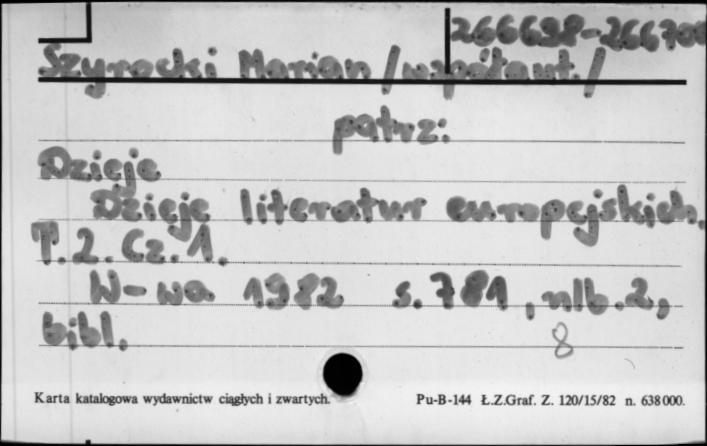 266698-266700
Szyrocki Marian /współaut./
patrz:
Dzieje
Dzieje literatur europejskich.
T.2. Cz. 1.
W-wa 1982 s. 781, nlb. 2,
bibl.
8
Karta katalogowa wydawnictw ciągłych i zwartych. Pu-B-144 Ł.Z.Graf. Z. 120/15/82 n. 638000.